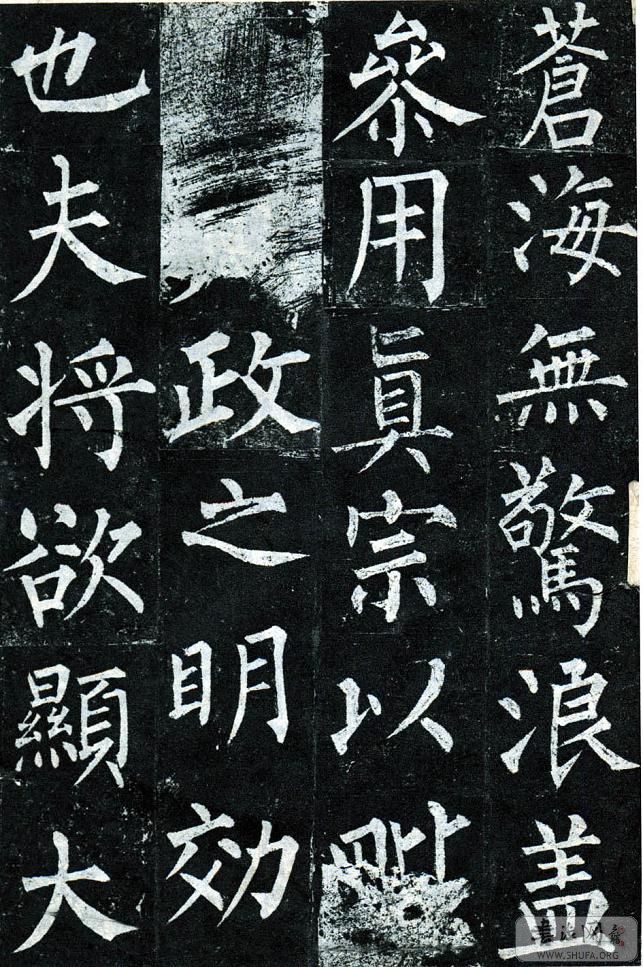 蒼海無驚浪盖
叅用眞宗以
政之明効
也夫将欲顯大
WWW.SHUFA.ORG